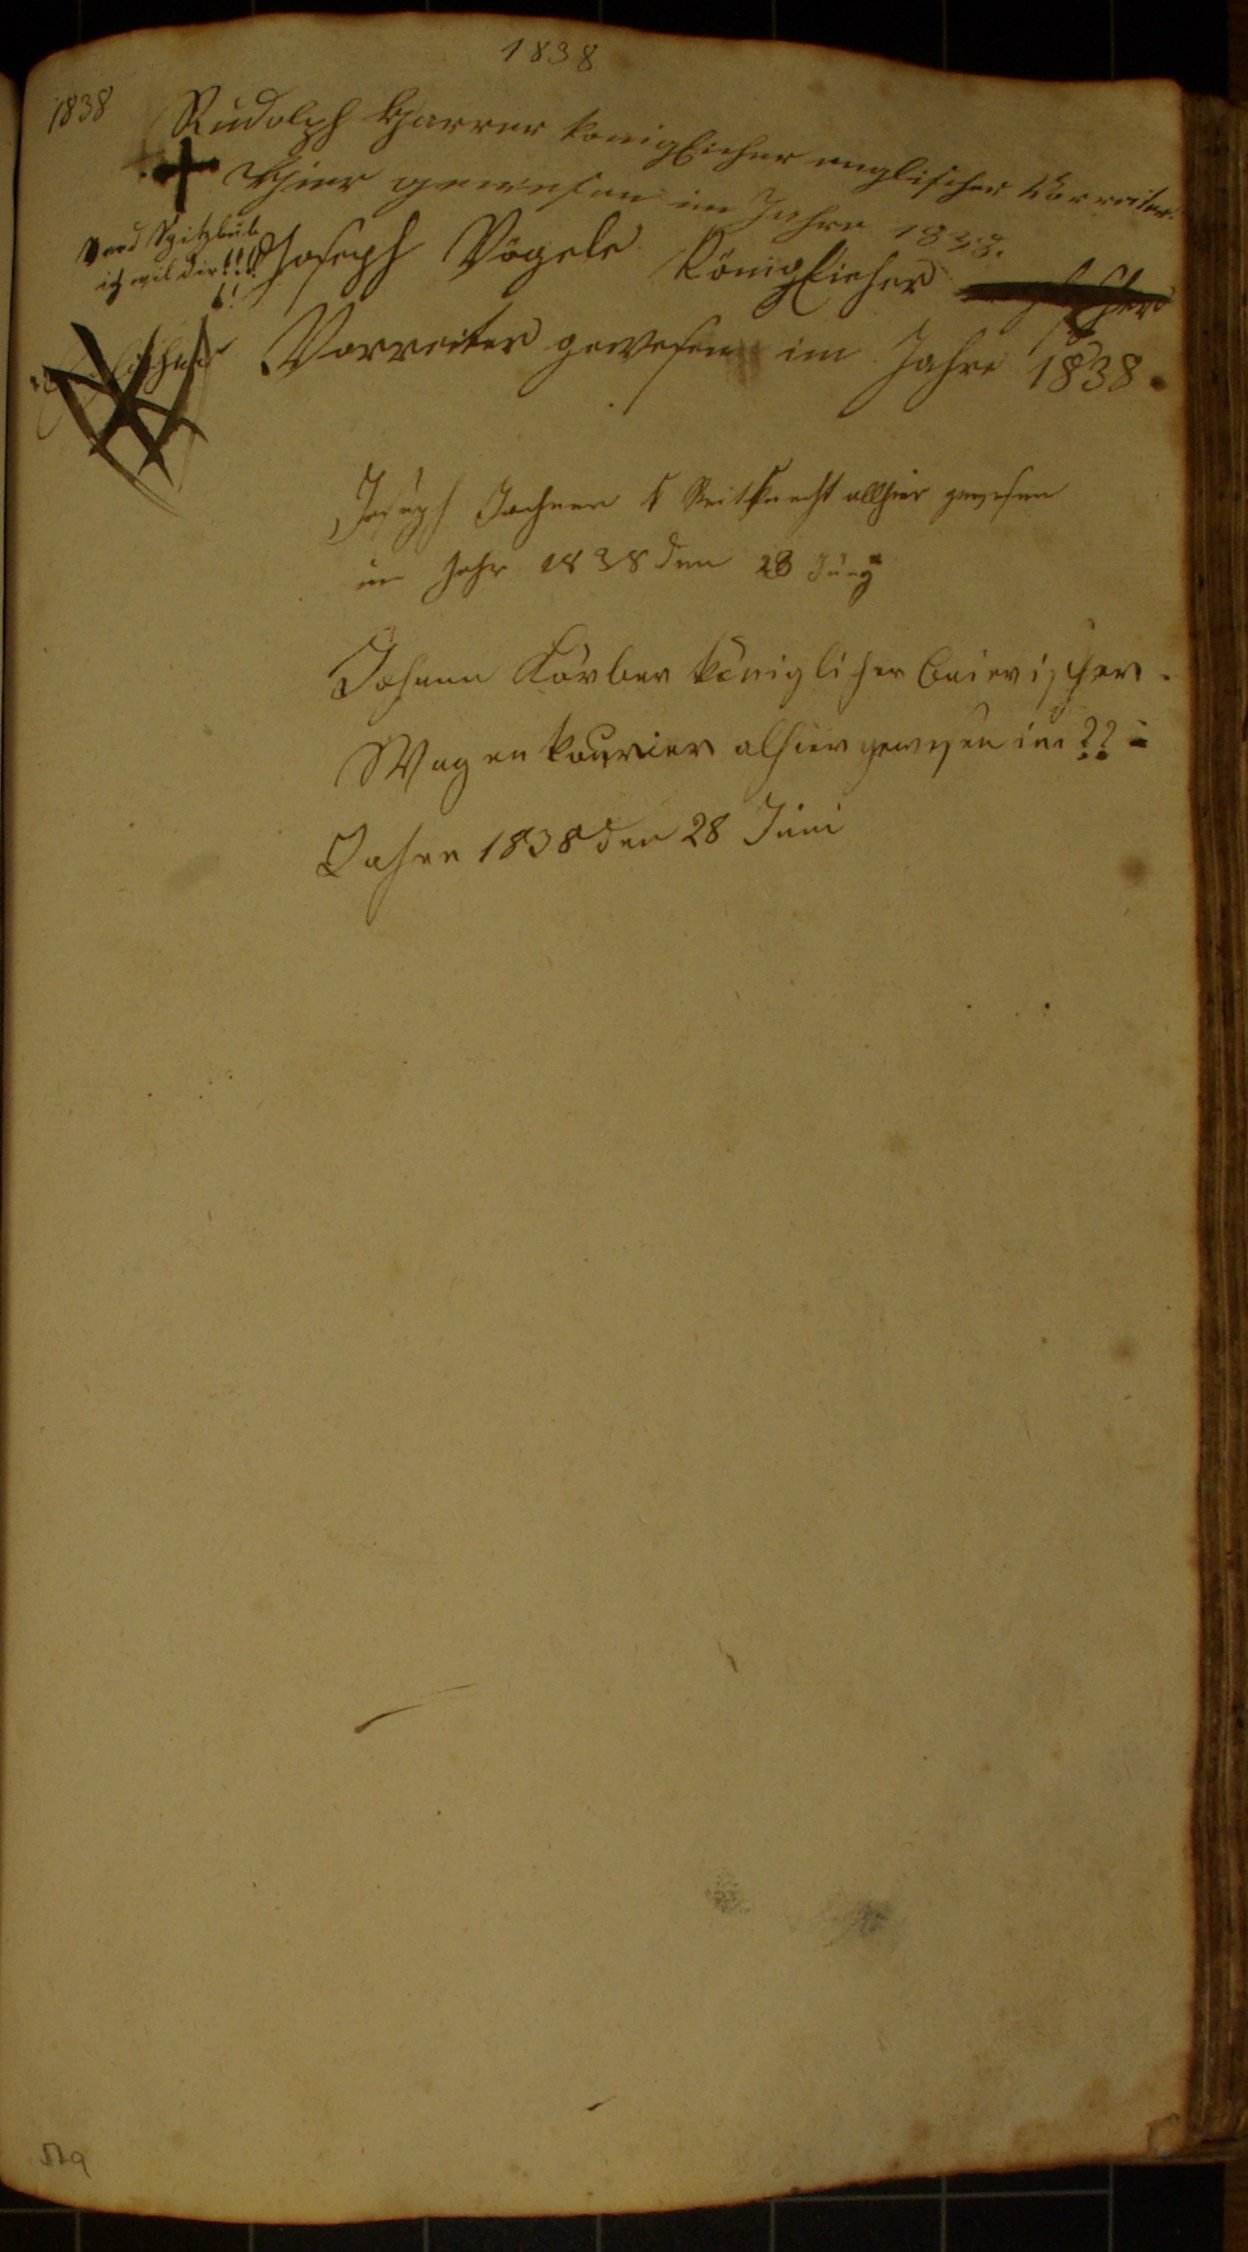 1838
1838
Rudolph Harrer königlicher englischer Vorreiter.
Hier gewesen im Jahre 1838.
Joseph Vögele Königlicher
Vorreiter gewesen im Jahre 1838.
Spitzbub
ich wil dir!!!
!!
Joseph Reitknecht allhier gewesen
im Jahr 1838 den 28 Juny
Johann Körber königlicher baierischer.
Wagenkourier alhier gewesen im ?? =
Jahre 1838 den 28 Juni